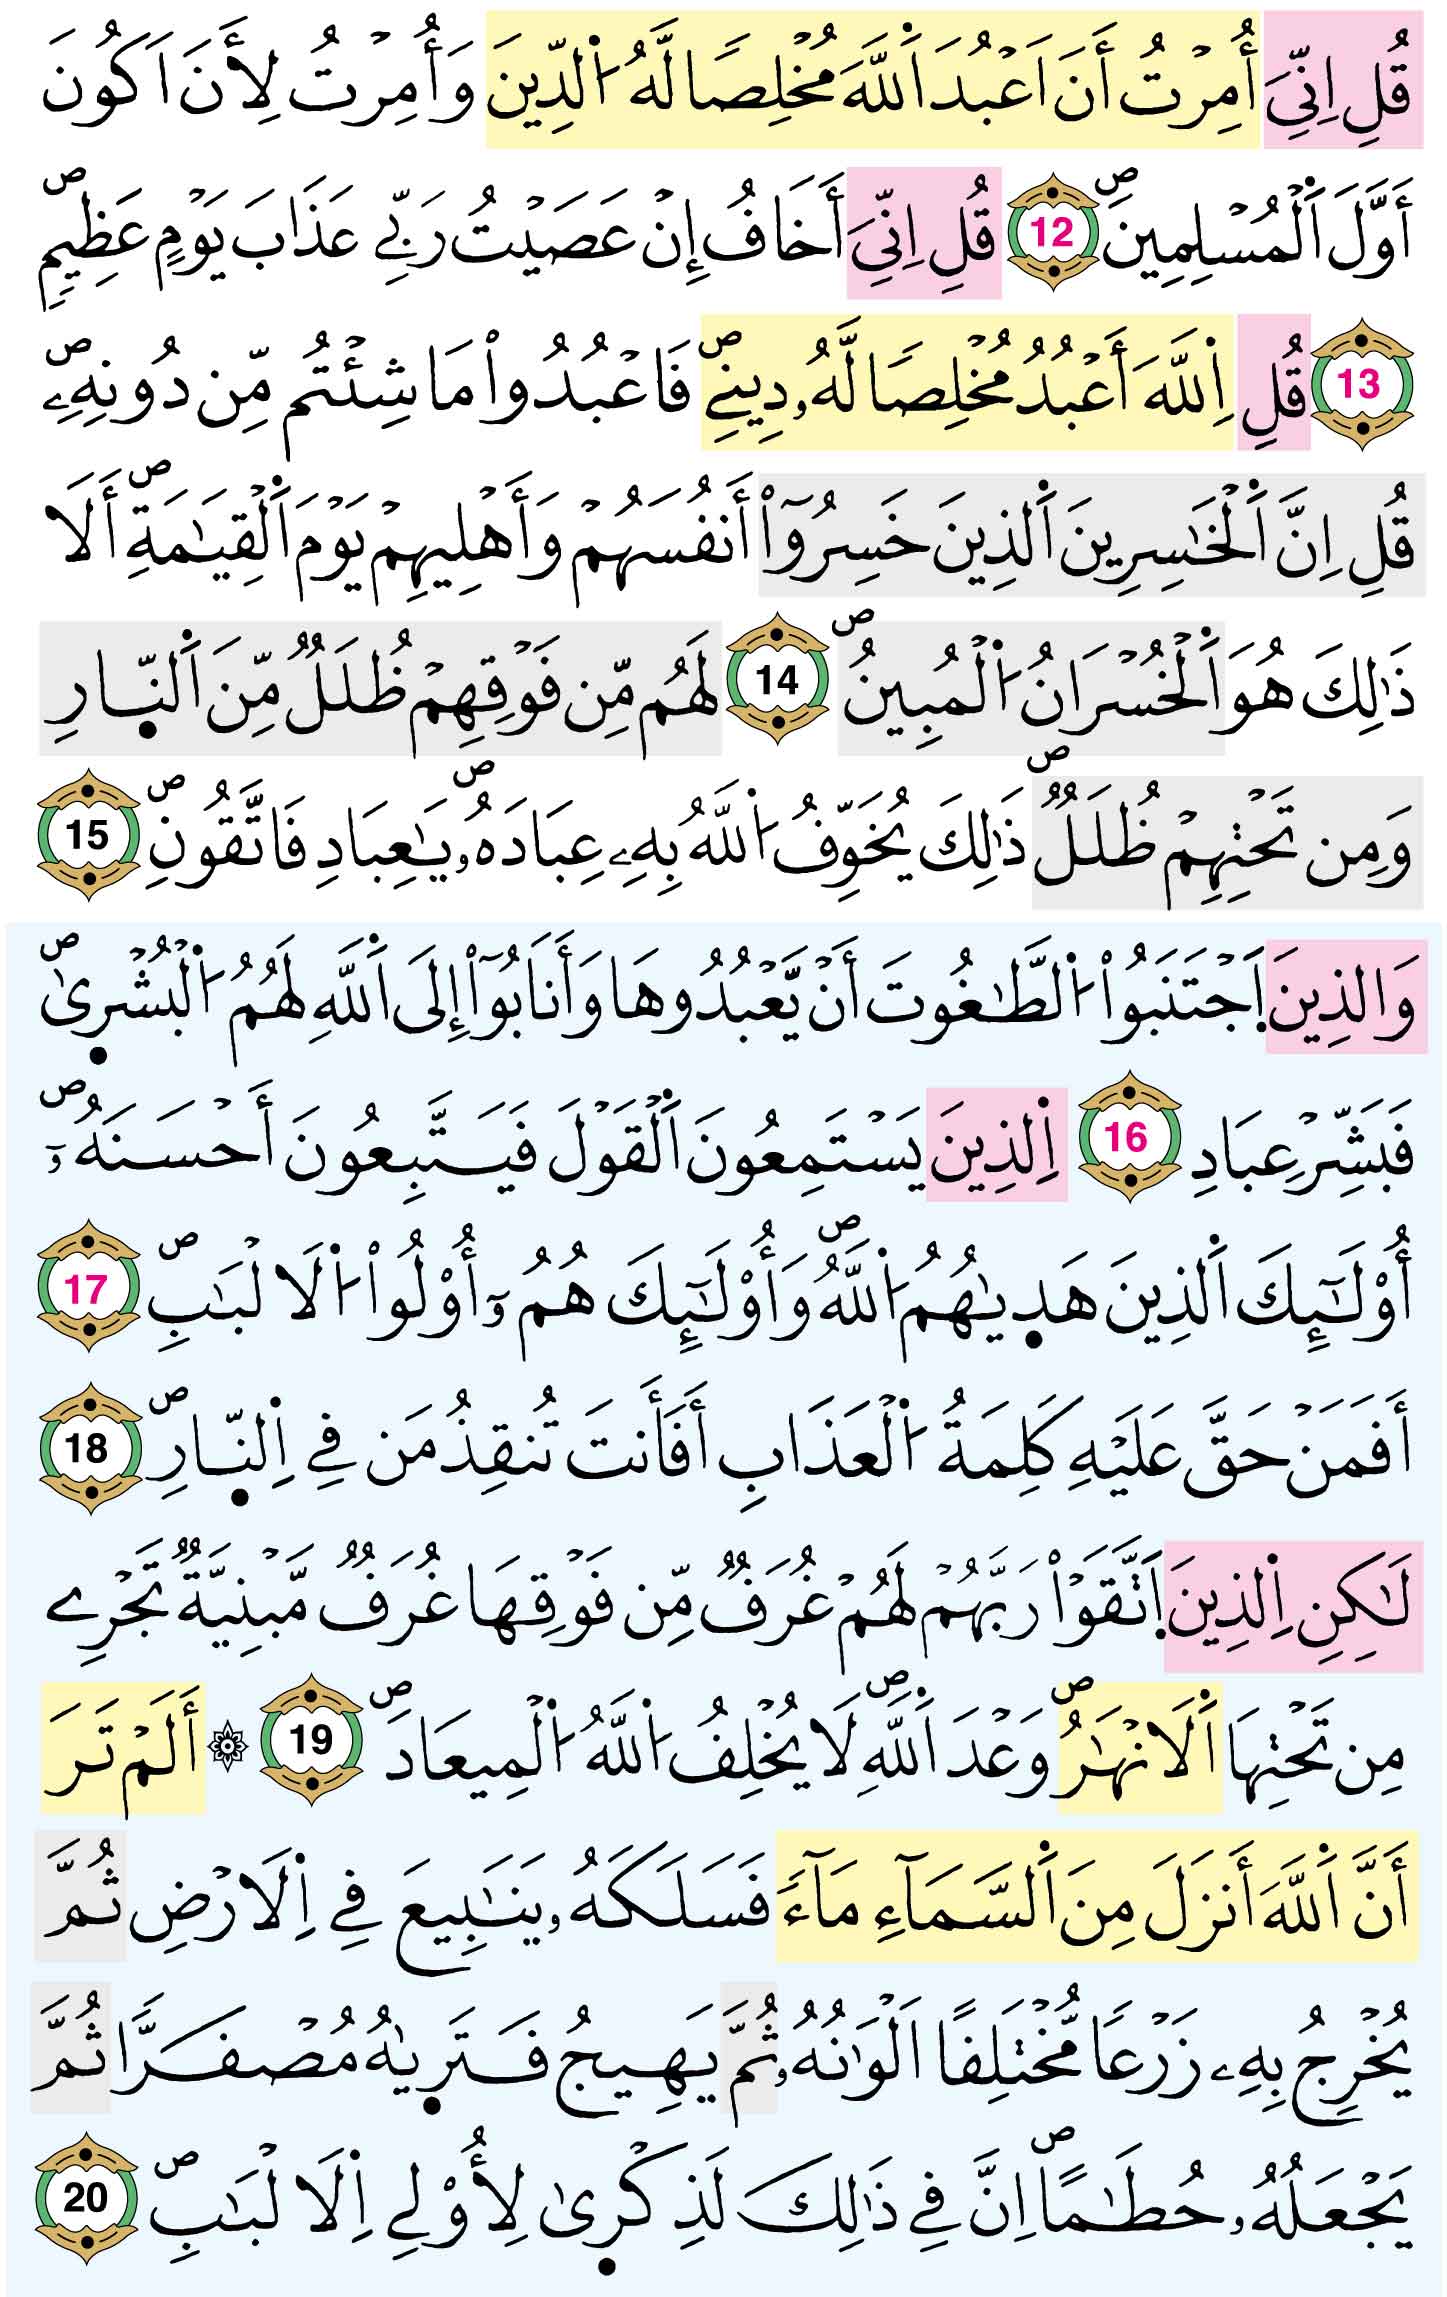 قُلِ اِنِّيَ أُمِرْتُ أَنَ اَعْبُدَ اَ۬للَّهَ مُخْلِصاٗ لَّهُ اُ۬لدِّينَ وَأُمِرْتُ لِأَنَ اَكُونَ
أَوَّلَ اَ۬لْمُسْلِمِينَۖ 12 قُلِ اِنِّيَ أَخَافُ إِنْ عَصَيْتُ رَبِّے عَذَابَ يَوْمٍ عَظِيمٖۖ
13 قُلِ اِ۬للَّهَ أَعْبُدُ مُخْلِصاٗ لَّهُۥ دِينِےۖ فَاعْبُدُواْ مَا شِئْتُم مِّن دُونِهِۦۖ
قُلِ اِنَّ اَ۬لْخَٰسِرِينَ اَ۬لذِينَ خَسِرُوٓاْ أَنفُسَهُمْ وَأَهْلِيهِمْ يَوْمَ اَ۬لْقِيَٰمَةِۖ أَلَا
ذَٰلِكَ هُوَ اَ۬لْخُسْرَانُ اُ۬لْمُبِينُۖ 14 لَهُم مِّن فَوْقِهِمْ ظُلَلٞ مِّنَ اَ۬لنّ۪ارِ
وَمِن تَحْتِهِمْ ظُلَلٞۖ ذَٰلِكَ يُخَوِّفُ اُ۬للَّهُ بِهِۦ عِبَادَهُۥۖ يَٰعِبَادِ فَاتَّقُونِۖ 15
وَالذِينَ اَ۪جْتَنَبُواْ اُ۬لطَّٰغُوتَ أَنْ يَّعْبُدُوهَا وَأَنَابُوٓاْ إِلَى اَ۬للَّهِ لَهُمُ اُ۬لْبُشْر۪ىٰۖ
فَبَشِّرْ عِبَادِ 16 اِ۬لذِينَ يَسْتَمِعُونَ اَ۬لْقَوْلَ فَيَتَّبِعُونَ أَحْسَنَهُۥٓۖ
أُوْلَٰٓئِكَ اَ۬لذِينَ هَد۪يٰهُمُ اُ۬للَّهُۖ وَأُوْلَٰٓئِكَ هُمُۥٓ أُوْلُواْ اُ۬لَالْبَٰبِۖ 17
أَفَمَنْ حَقَّ عَلَيْهِ كَلِمَةُ اُ۬لْعَذَابِ أَفَأَنتَ تُنقِذُ مَن فِے اِ۬لنّ۪ارِۖ 18
لَٰكِنِ اِ۬لذِينَ اَ۪تَّقَوْاْ رَبَّهُمْ لَهُمْ غُرَفٞ مِّن فَوْقِهَا غُرَفٞ مَّبْنِيَّةٞ تَجْرِے
مِن تَحْتِهَا اَ۬لَانْهَٰرُۖ وَعْدَ اَ۬للَّهِۖ لَا يُخْلِفُ اُ۬للَّهُ اُ۬لْمِيعَادَۖ 19 ۞ أَلَمْ تَرَ
أَنَّ اَ۬للَّهَ أَنزَلَ مِنَ اَ۬لسَّمَآءِ مَآءٗ فَسَلَكَهُۥ يَنَٰبِيعَ فِے اِ۬لَارْضِ ثُمَّ
يُخْرِجُ بِهِۦ زَرْعاٗ مُّخْتَلِفاً اَلْوَٰنُهُۥ ثُمَّ يَهِيجُ فَتَر۪يٰهُ مُصْفَرّاٗ ثُمَّ
يَجْعَلُهُۥ حُطَٰماًۖ اِنَّ فِے ذَٰلِكَ لَذِكْر۪ىٰ لِأُوْلِے اِ۬لَالْبَٰبِۖ 20